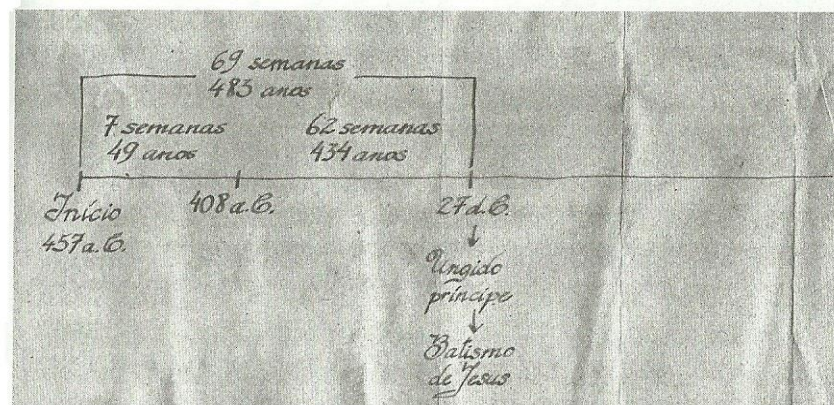 69 semanas
483 anos
7 semanas
49 anos
62 semanas
434 anos
Início
457 a.C.
408 a.C.
27 d.C.
Ungido
príncipe
Batismo
de Jesus